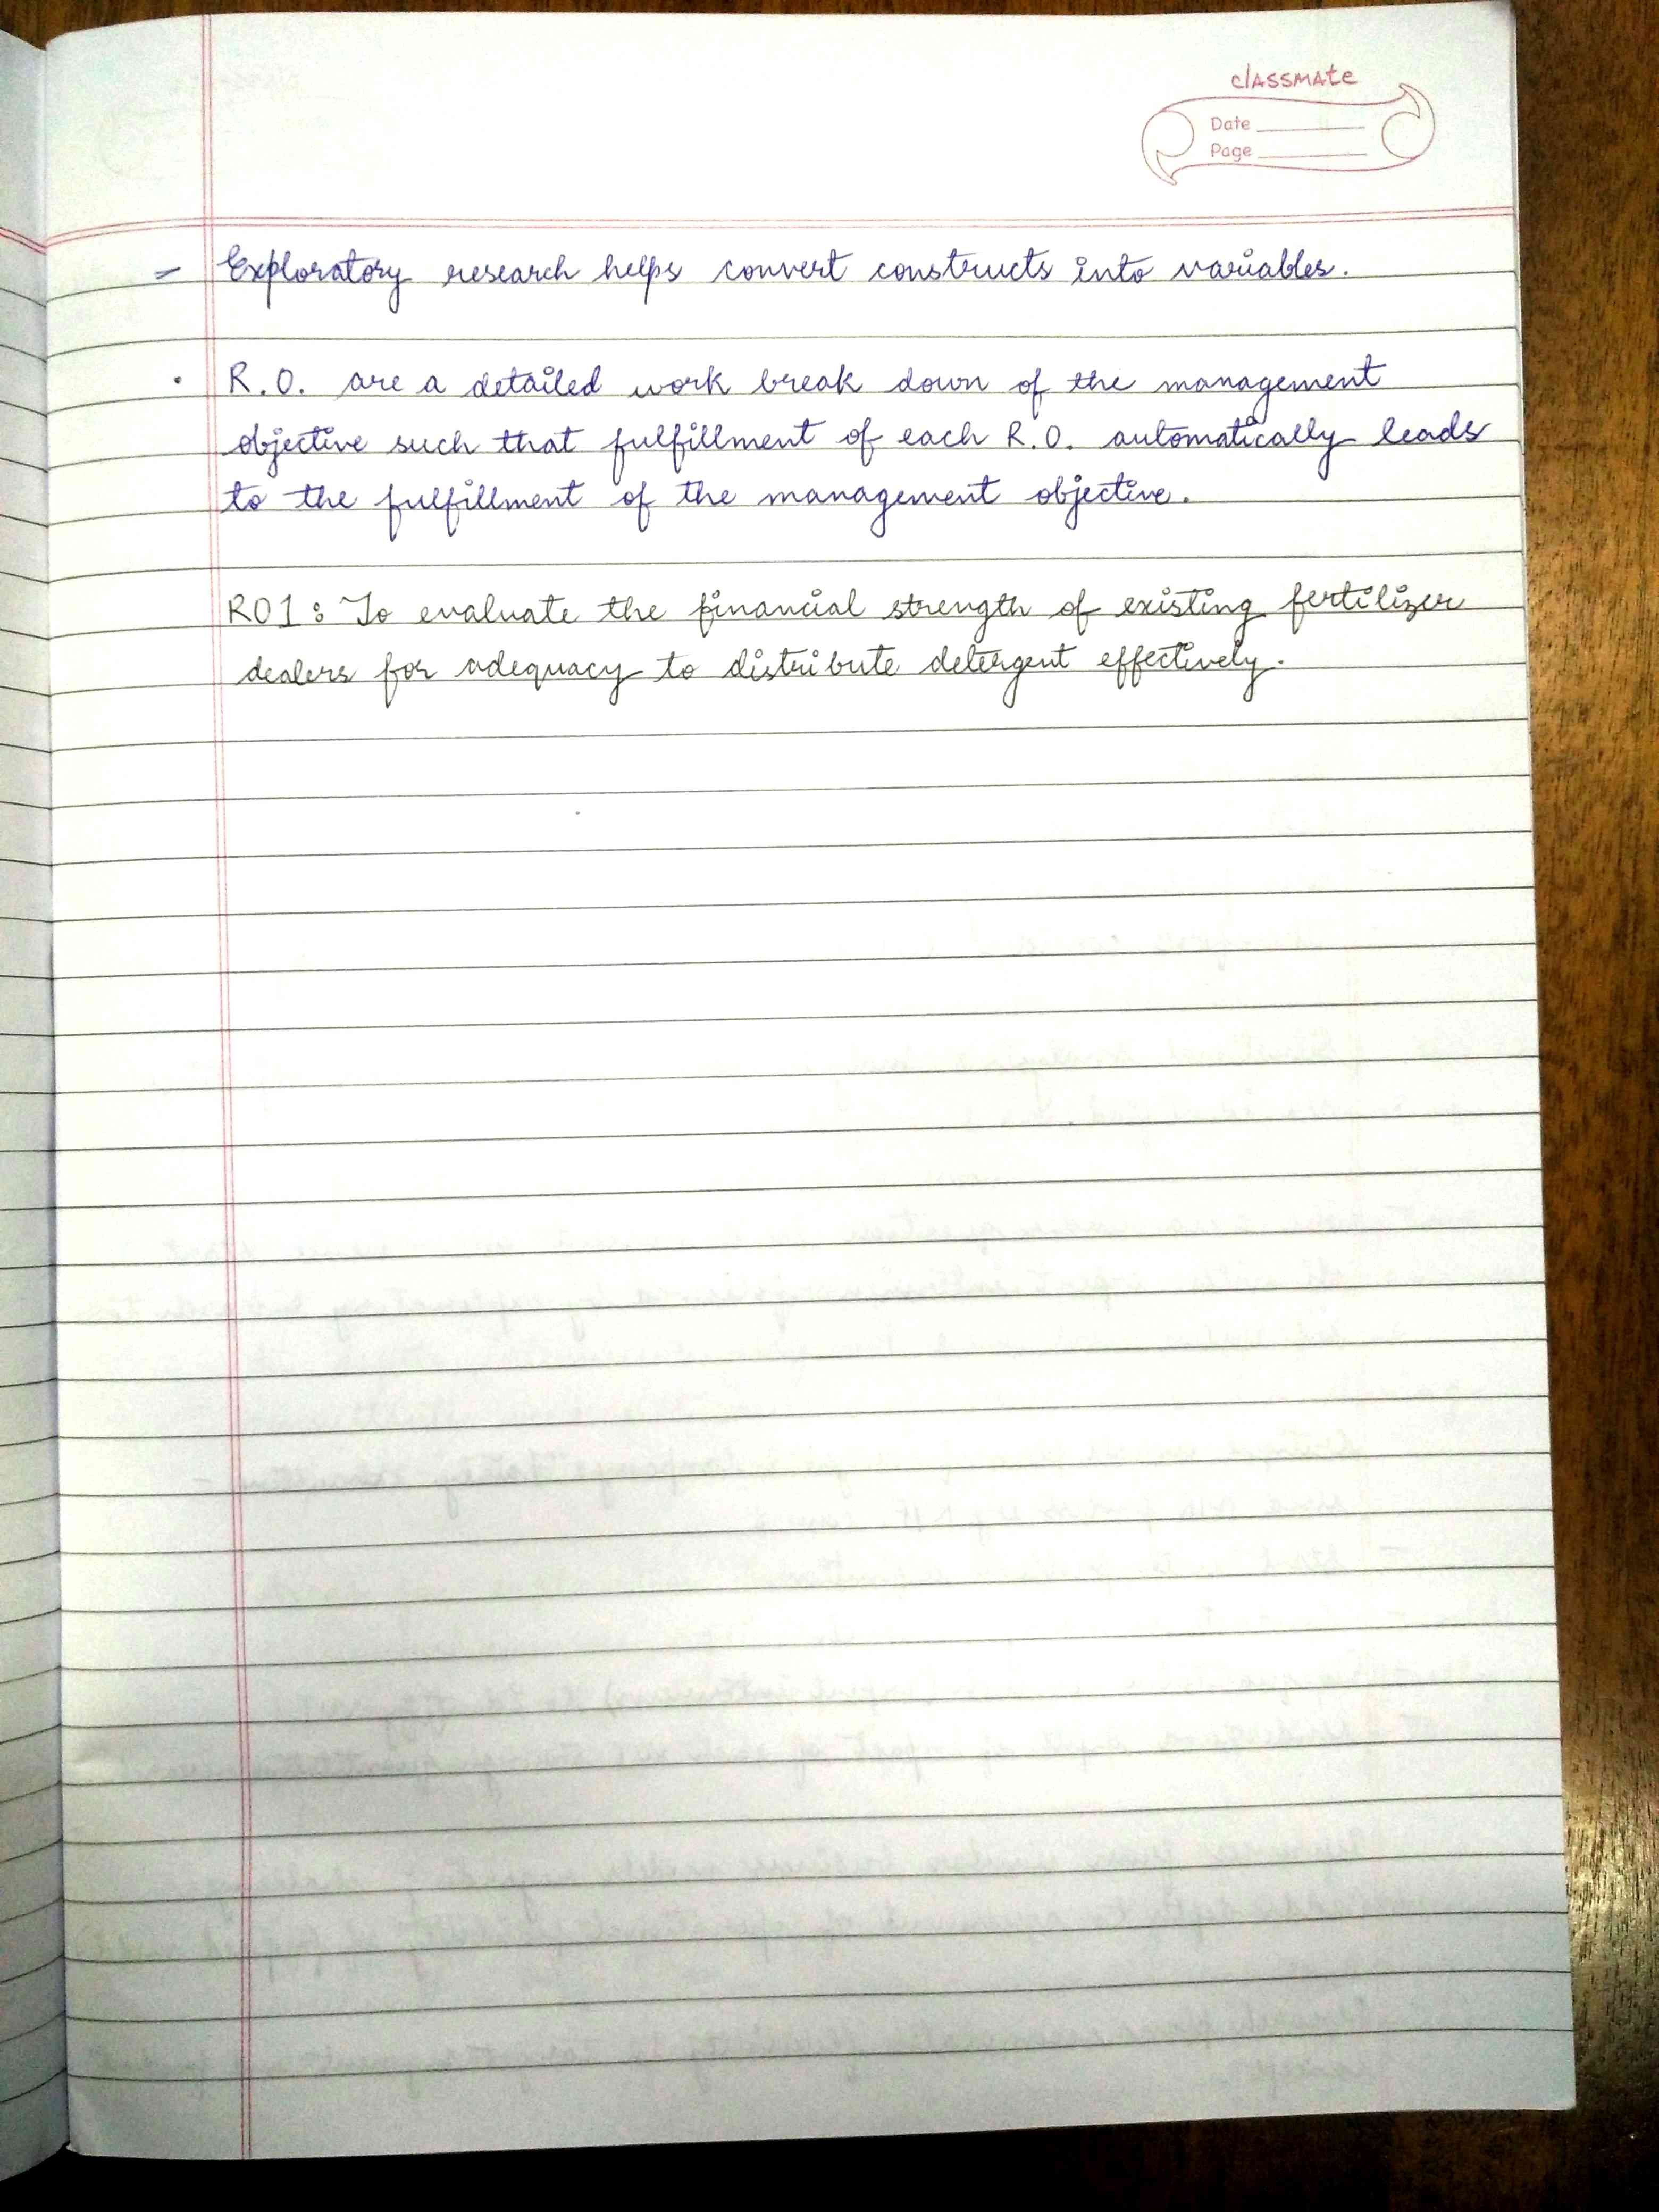 classmate
Date
Page
= Exploratory research helps convert constructs into variables.
· R.O. are a detailed work break down of the management
objective such that fulfillment of each R.O. automatically leads
to the fulfillment of the management objective.
RO1: To evaluate the financial strength of existing fertilizer
dealers for adequacy to distribute detergent effectively.